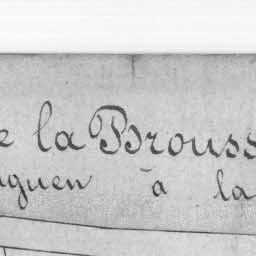 e la Brouss
guen à la